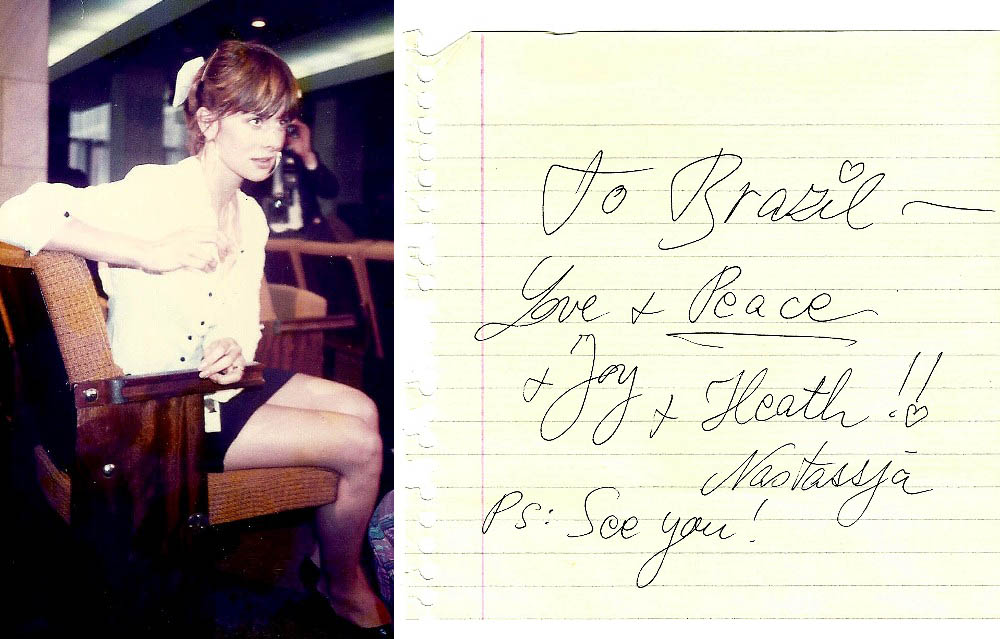 To Brazil —
Love + Peace
+ Joy + Heath !!
Nastassja
Ps: See you!